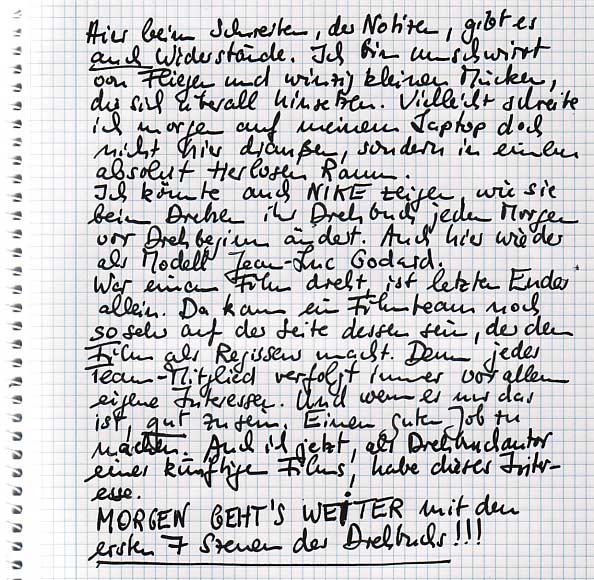 Hier beim Schreiben, der Notizen, gibt es
auch Widerstände. Ich bin umschwirrt
von Fliegen und winzig kleinen Mücken,
die sich überall hinsetzen. Vielleicht schreibe
ich morgen auf meinem Laptop doch
nicht hier draußen, sondern in einem
absolut tierlosen Raum.
Ich könnte auch NIKE zeigen, wie sie
beim Drehen ihr Drehbuch jeden Morgen
vor Drehbeginn ändert. Auch hier wieder
als Modell Jean-Luc Godard.
Wer einen Film dreht, ist letzten Endes
allein. Da kann ein Filmteam noch
so sehr auf der Seite dessen sein, der den
Film als Regisseur macht. Denn jedes
Team-Mitglied verfolgt immer vor allem
eigene Interessen. Und wenn es nur das
ist, gut zu sein. Einen guten Job zu
machen. Auch ich jetzt, als Drehbuchautor
eines künftigen Films, habe dieses Inter-
esse.
MORGEN GEHT'S WEITER mit den
ersten 7 Szenen des Drehbuchs!!!